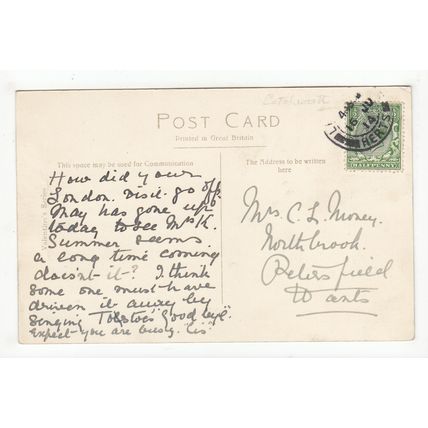 POST CARD
Printed in Great Britain
This space may be used for Communication
The Address to be written
here
HALFPENNY
16 JU
14
HERTS
How did your
London Visit go off.
May has gone up
today to see Mrs K.
Summer seems
a long time coming
doesn't it? I think
some one must have
driven it away by
singing Tosti's "Good bye".
Expect you are busy.
Mrs. C. L. Money.
Northbrook.
Petersfield
Hants